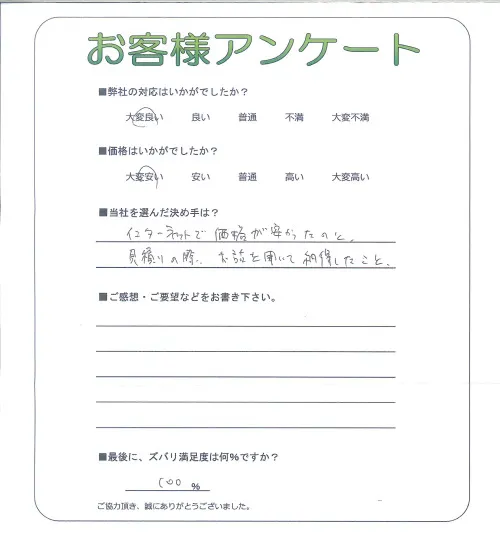 お客様アンケート
■弊社の対応はいかがでしたか？
大変良い 良い 普通 不満 大変不満
■価格はいかがでしたか？
大変安い 安い 普通 高い 大変高い
■当社を選んだ決め手は？
インターネットで価格が安かったのと、
見積りの際、お話を聞いて納得したこと、
■ご感想・ご要望などをお書き下さい。
■最後に、ズバリ満足度は何%ですか？
100 %
ご協力頂き、誠にありがとうございました。